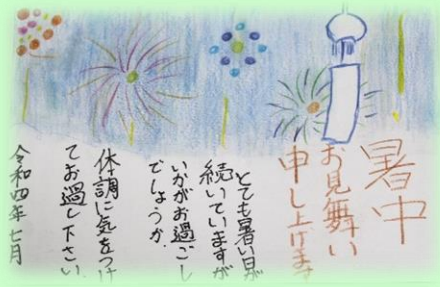 暑中
お見舞い
申し上げます
とても暑い日が
続いていますが
いかがお過ごし
でしょうか。
体調に気をつけ
てお過し下さい。
令和四年七月